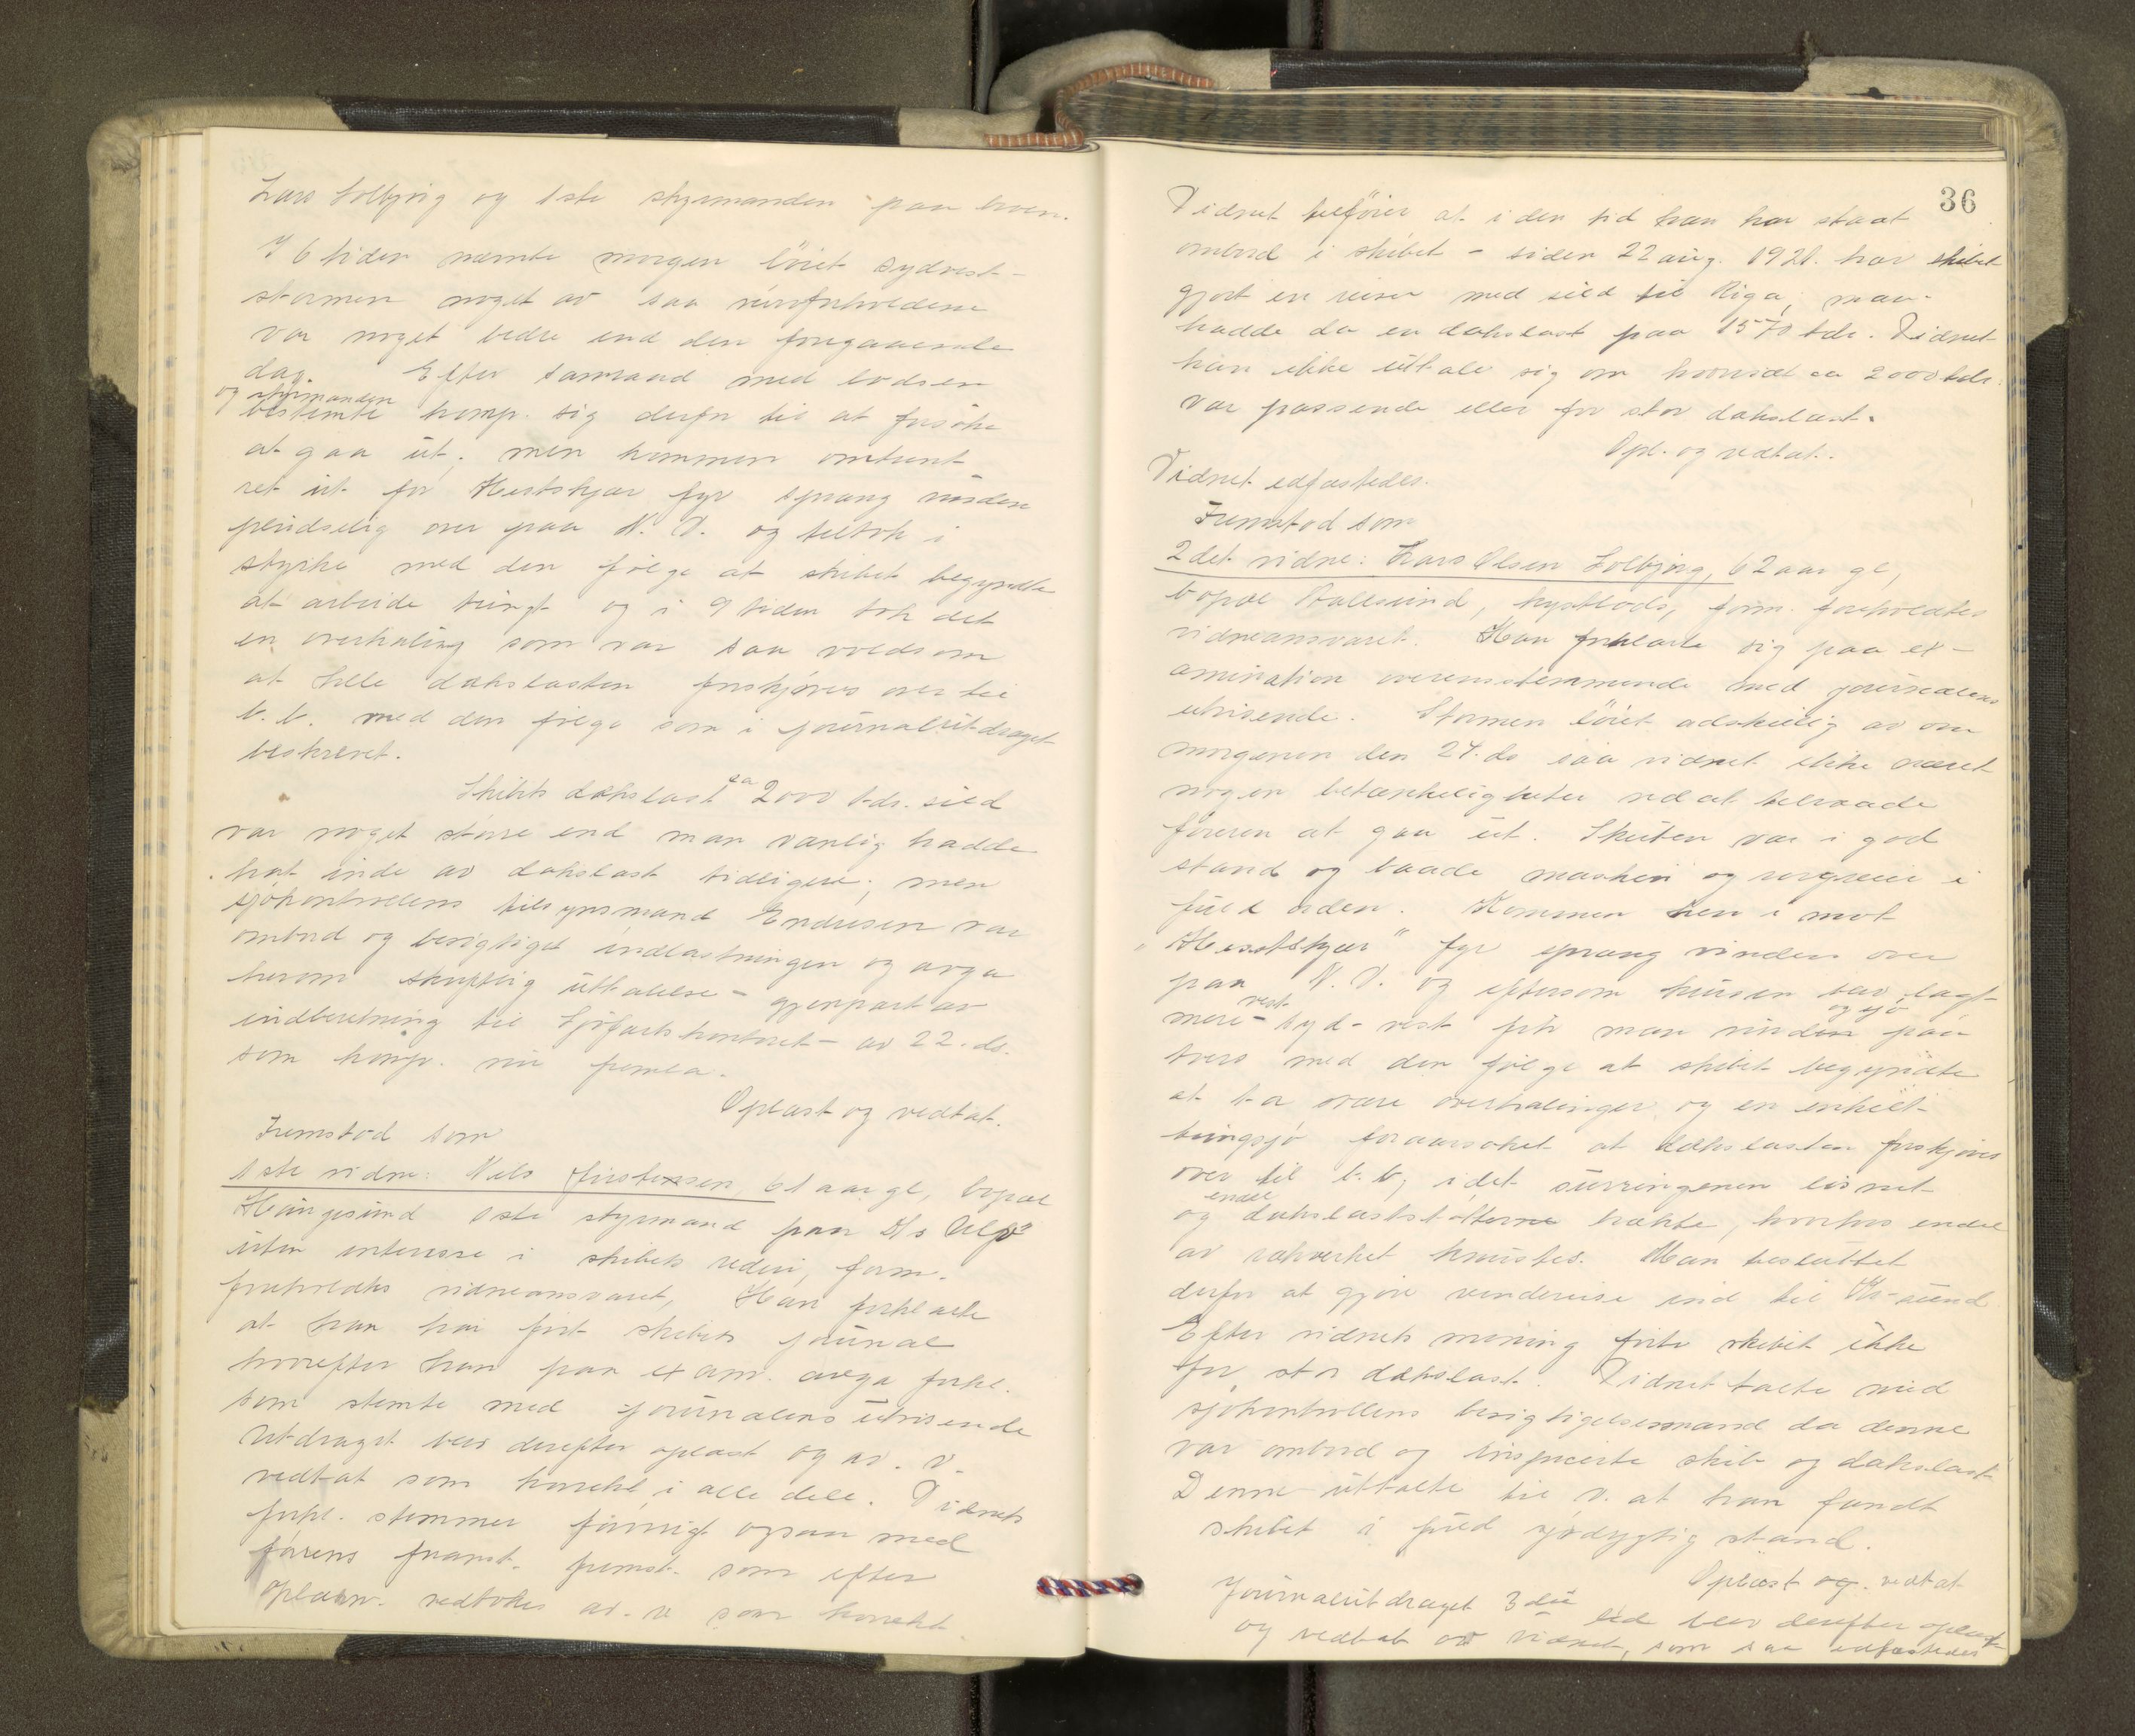 Lars Solbjørg og 1ste styrmanden paa broen.
I 6 tiden nævnte morgen løiet sydvest-
stormen noget av saa veirforholdene
var noget bedre end den foregaaende
dag. Efter samraad med lodsen
og styrmanden
bestemte komp. sig derfor til at forsøke
at gaa ut; men kommen omtrent
ret ut for Hestskjær fyr sprang vinden
pludselig over paa N. V. og tiltok i
styrke med den følge at skibet begyndte
at arbeide tungt og i 9 tiden tok det
en overhaling som var saa voldsom
at hele dækslasten forskjøves over til
b.b. med den følge som i journalutdraget
beskrevet.
Skibets dækslast ca 2000 tdr. sild
var noget større end man vanlig hadde
hat inde av dækslast tidligere; men
sjøkontrollens tilsynsmand Endresen var
ombord og besigtiget indlastningen og avga
herom skriftlig uttalelse - gjenpart av
indberetning til Sjøfartskontoret - av 22. ds.
som komp. nu fremla.
Oplæst og vedtat.
Fremstod som
1ste vidne: Nils 61 aar gl, bopæl
Haugesund 1ste styrmand paa D/s
uten interesse i skibets rederi, form.
foreholdtes vidneansvaret, Han forklarte
at han har ført skibets journal
hvorefter han paa exam. avga forkl.
som stemte med journalens utvisende
Utdraget blev derefter oplæst og av. v.
vedtat som korrekt i alle dele. Vidnets
forkl. stemmer forøvrigt ogsaa med
førerens fremst. som efter
oplæsn. vedtokes av. v som korrekt.
36
Vidnet tilføier at i den tid han har staat
ombord i skibet - siden 22 aug. 1921. har skibet
gjort en reise med sild til Riga, man
hadde da en dækslast paa 1570 tdr. Vidnet
kan ikke uttale sig om hvorvidt ca 2000 tdr.
var passende eller for stor dækslast.
Opl. og vedtat.
Vidnet edfæstedes.
Fremstod som
2det vidne: Lars Olsen Solbjørg, 62 aar gl,
bopæl kystlods, form. foreholdtes
vidneansvaret. Han forklarte sig paa ex-
amination overensstemmende med journalens
utvisende. Stormen løiet adskillig av om
morgenen den 24. ds saa vidnet ikke næret
nogen betænkeligheter ved at tilraade
føreren at gaa ut. Skuten var i god
stand og baade maskin og i
fuld orden. Kommen hen i mot
"Hestskjær" fyr sprang vinden over
paa N. V. og eftersom kursen var lagt
vest og sjø
mere - syd-vest fik man vinden paa
tvers med den følge at skibet begyndte
at ta svære overhalinger og en enkelt
tungsjø foraarsaket at dækslasten forskjøves
over til b.b, idet surringene løsnet
endel
og dækslaststøtterne brækte, hvorhos endel
av rækverket knustes. Man besluttet
derfor at gjøre vendereise ind til Kr-sund
Efter vidnets mening førte skibet ikke
for stor dækslast. Vidnet talte med
sjøkontrollens besigtigelsesmand da denne
var ombord og inspicerte skib og dækslast
Denne uttalte til v. at han fandt
skibet i fuld sjødygtig stand.
Oplæst og. vedtat
Journalutdraget blev derefter oplæst
og vedtat av vidnet, som saa edfæstedes